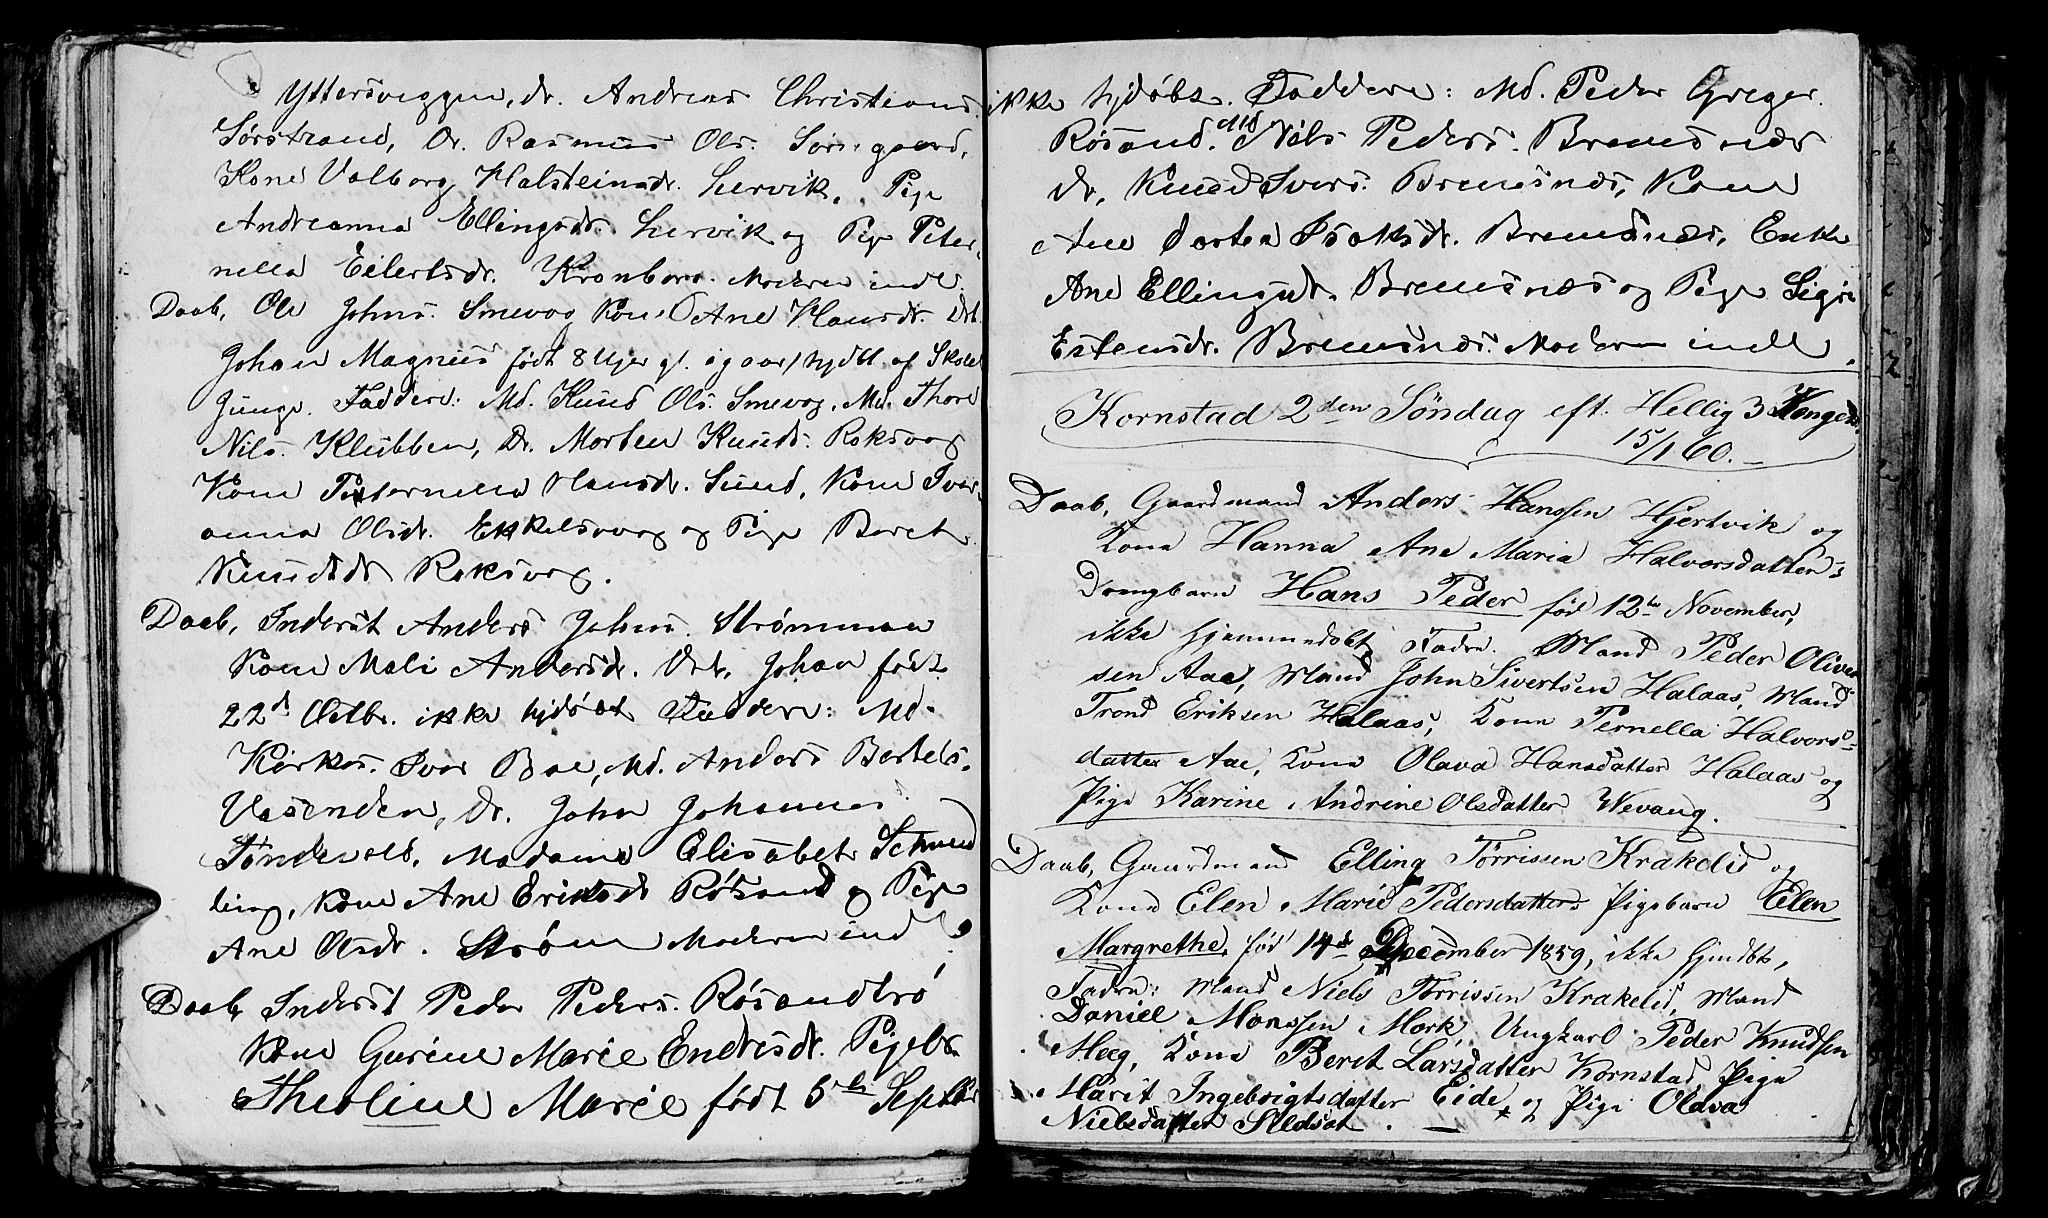 Yttersveggen, dr. Andreas Christians.
Sørstrand, Dr. Rasmus Ols.
Kone Valborg Halsteinsdr. Lervik, Pige
Andreanna Ellingsdr. Lervik og Pige Peter-
nella Eilertsdr. Kronborg. Moderen indl.
Daab, Ole Johns. Smevog Kone Ane Hansdr. Db.
Johan Magnus født 8 Ujer gl. igaar/hjdbt. af Skole
Junge. Faddere: Md. Knud Ols. Smevog, Md. Thore
Nils. Klubben, Dr. Morten Knuds. Roksvog
Kone Peternella Hansdr. Sund, Kone Iver-
anna Olsdr. Ekkelsvog og Pige Beret
Knudsdr Roksvog.
Daab, Inderst Anders Johns. Strømmen
Kone Mali Andersdr. Db. Johan født
22d Octbr. ikke hjdøbt Faddere: Md.
Kirkes. Iver Boe, Md. Anders Bertels.
Vasenden, Dr. John Johannes.
Tøndevold, Madame Elisabet Schmed
ling, Kone Ane Eriksdr Røsand og Pige
Ane Olsdr. Strøm Moderen indl
Daab, Inderst Peder Peders. Røsandbrø
Kone Gurine Marie Endresdr. Pigeb.
Theoline Marie født 5te Septbr
ikke hjdøbt. Faddere: Md. Peder Greger.
Røsand. Md Nils Peders. Bremsnæs
dr, Knud Ivers. Bremsnæs, Kone
Ane Dortea Isaksdr. Bremsnæs, Enke
Ane Ellingsdr. Bremsnæs og Pige Sigri
Estensdr. Bremsnæs. Moderen indl.
Kornstad 2den Søndag eft. Hellig 3 Konger
15/1 60.
Daab, Gaardmand Anders Hanssen Hjertvik og
Kone Hanna Ane Maria Halvorsdatters
Drengbarn Hans Peder fød 12te November,
ikke hjemmedøbt, Fadre. Mand Peder Oliver
sen Aae, Mand John Sivertsen Halaas, Mand
Trond Eriksen Halaas, Kone Pernella Halvors-
datter Aae, Kone Olava Hansdatter Halaas og
Pige Karine Andrine Olsdatter Wevang.
Daab, Gaardmand Elling Tørrissen Krakelid og
Kone Elen Marie Pedersdatters Pigebarn Elen
Margrethe, fød 14de December 1859, ikke hjmdbt,
Fadre: Mand Niels Tørrissen Krakelid, Mand
Daniel Monssen Mork, Ungkarl Peder Knudsen
Meeg, Kone Berit Larsdatter Kornstad Pige
Marit Ingebrigtsdatter Eide og Pige Olava
Nielsdatter Sledsot.